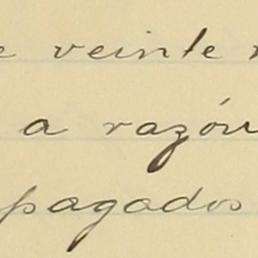 e veinte
a razón
pagados